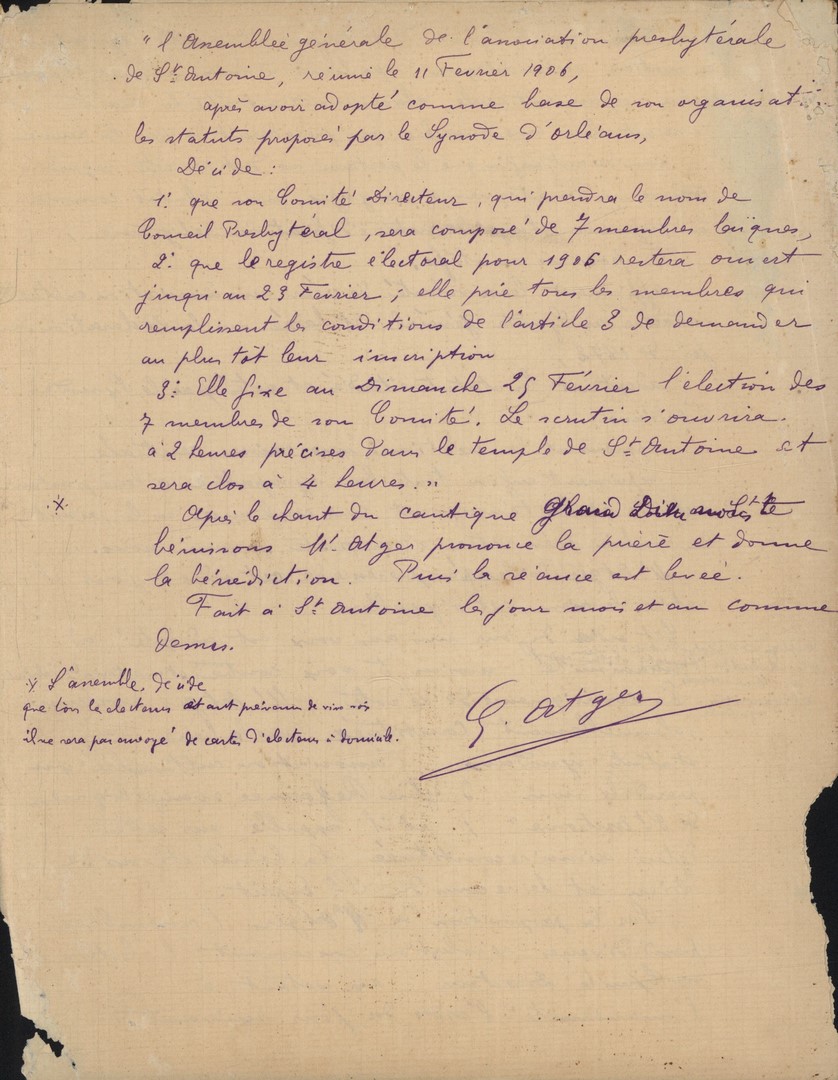 "l'Assemblée générale de l'association presbytérale
de St Antoine, réunie le 11 Février 1906,
après avoir adopté comme base de son organisat
les statuts proposés par le Synode d'Orléans,
Décide:
1° que son Comité Directeur, qui prendra le nom de
Conseil Presbytéral, sera composé de 7 membres laïques,
2° que le registre électoral pour 1906 restera ouvert
jusqu'au 23 Février; elle prie tous les membres qui
remplissent les conditions de l'article 3 de demander
au plus tôt leur inscription
3° Elle fixe au Dimanche 25 Février l'élection des
7 membres de son Comité. Le scrutin s'ouvrira
à 2 heures précises dans le temple de St Antoine et
sera clos à 4 heures."
x Après le chant du cantique Grand Dieu nous te
bénissons Mr Atger prononce la prière et donne
la bénédiction. Puis la séance est levée.
Fait à St Antoine les jour mois et an comme
dessus.
x L'assemblée décide
que tous les électeurs étant prévenus de vive voix
il ne sera pas envoyé de cartes d'électeurs à domicile.
G. Atger